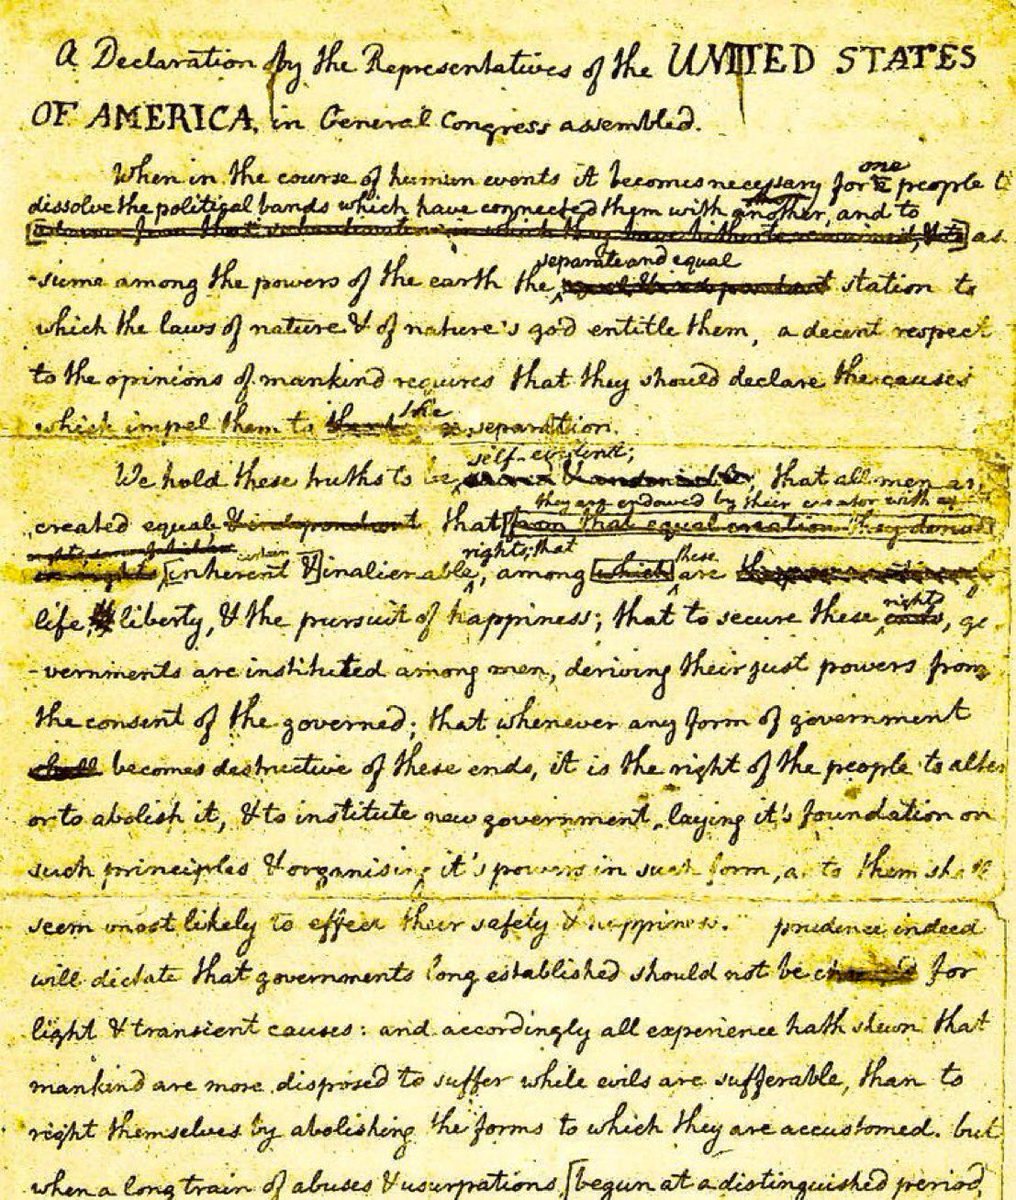 A Declaration by the Representatives of the UNITED STATES
OF AMERICA, in General Congress assembled.
When in the course of human events it becomes necessary for one people to
dissolve the political bands which have connected them with another, and to
as
separate and equal
-sume among the powers of the earth the station to
which the laws of nature & of nature's god entitle them, a decent respect
to the opinions of mankind requires that they should declare the causes
the
which impel them to separation.
self-evident;
We hold these truths to be sacred & undeniable; that all men are
they are endowed by their creator with
created equal & independant that [from that equal creation they derive
rights; that
certain these
in rights [inherent &] inalienable, among [which] are
rights
life, & liberty, & the pursuit of happiness; that to secure these ends, go
-vernments are instituted among men, deriving their just powers from
the consent of the governed; that whenever any form of government
shall becomes destructive of these ends, it is the right of the people to alter
or to abolish it, & to institute new government, laying it's foundation on
such principles & organising it's powers in such form, as to them shall
seem most likely to effect their safety & happiness. prudence indeed
will dictate that governments long established should not be changed for
light & transient causes: and accordingly all experience hath shewn that
mankind are more disposed to suffer while evils are sufferable, than to
right themselves by abolishing the forms to which they are accustomed. but
when a long train of abuses & usurpations, [begun at a distinguished period